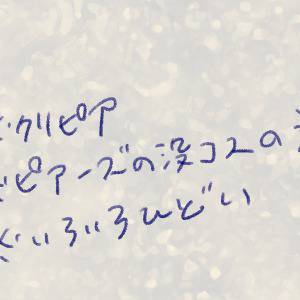 ・クリピア
ピアーズの没コスの
いろいろひどい